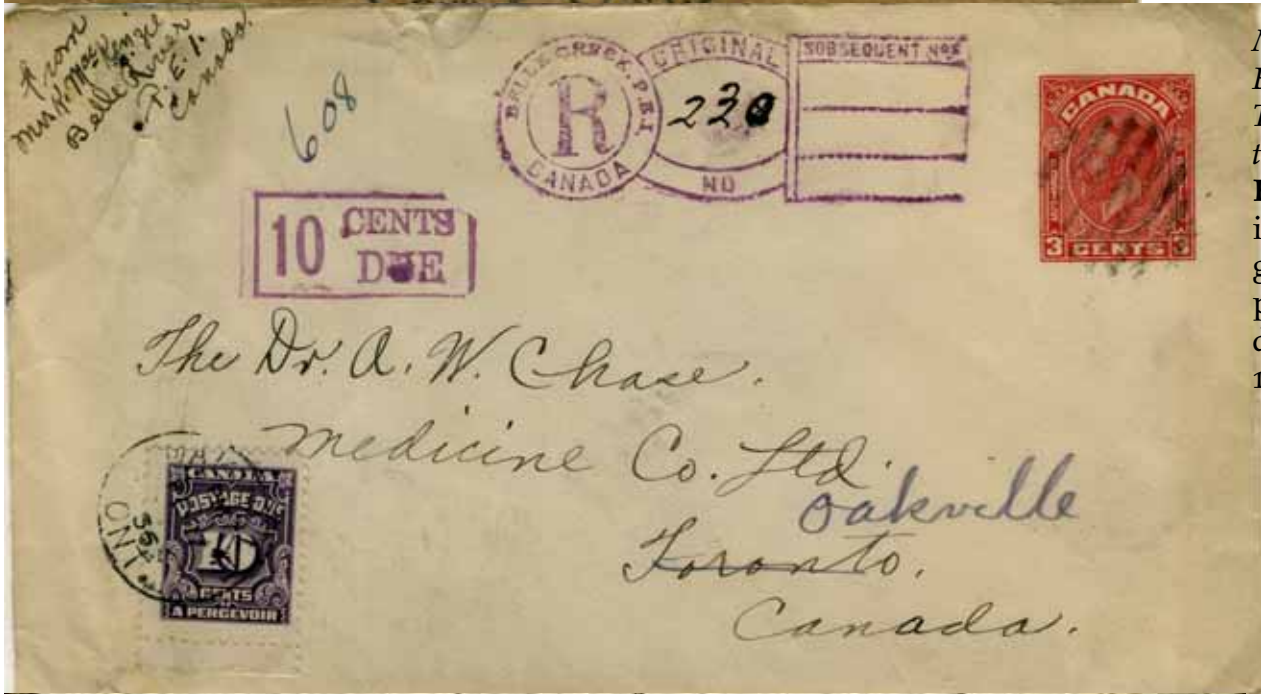 From
Mrs H. MacKenzie
Belle River
P.E.I.
Canada.
608
BELLE CREEK, P.E.I.
R
CANADA
ORIGINAL
230
NO
SUBSEQUENT NOS
CANADA
3 CENTS 3
10 CENTS
DUE
The Dr. A. W. Chase.
Medicine Co. Ltd.
Oakville
Toronto.
Canada.
CANADA
POSTAGE DUE
10
CENTS
A PERCEVOIR
35
ONT